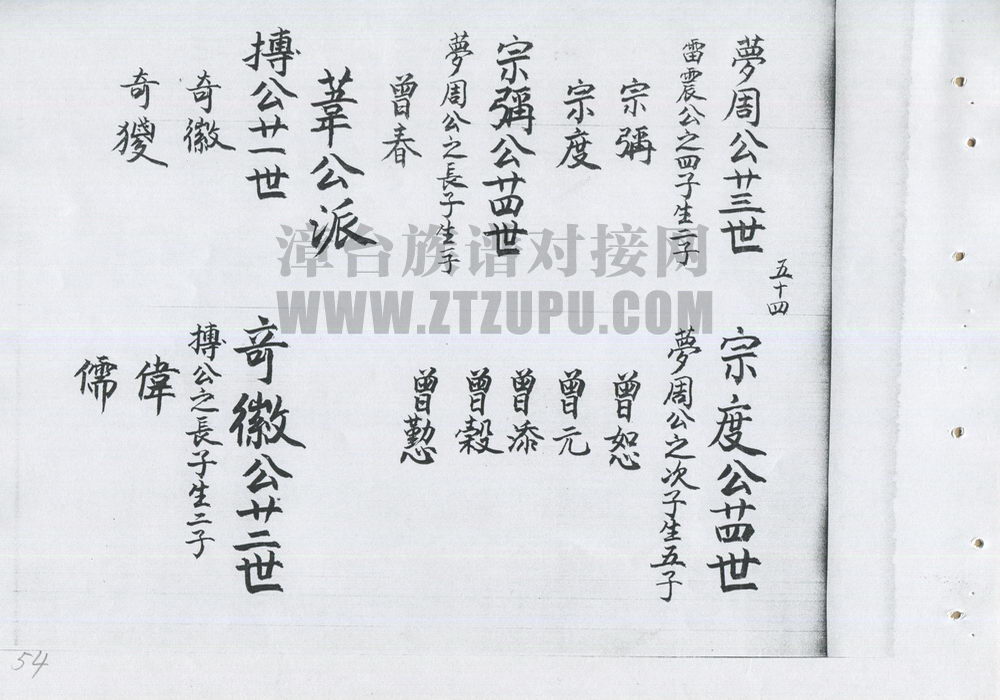 夢周公廿三世
雷震公之四子生二子
宗彌
宗度
宗彌公廿四世
夢周公之長子生一子
曾春
葦公派
摶公廿一世
奇徽
奇獿
五十四
宗度公廿四世
夢周公之次子生五子
曾恕
曾元
曾添
曾穀
曾懃
奇徽公廿二世
摶公之長子生二子
偉
儒
漳台族谱对接网
WWW.ZTZUPU.COM
54